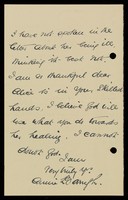 I have not spoken in the
letter about her being ill
thinking it best not.
I am so thankful dear
Alice is in your skilled
hands. I believe God will
bless what you do towards
her healing. I cannot
doubt God.
I am
Very truly Yrs.
Annie